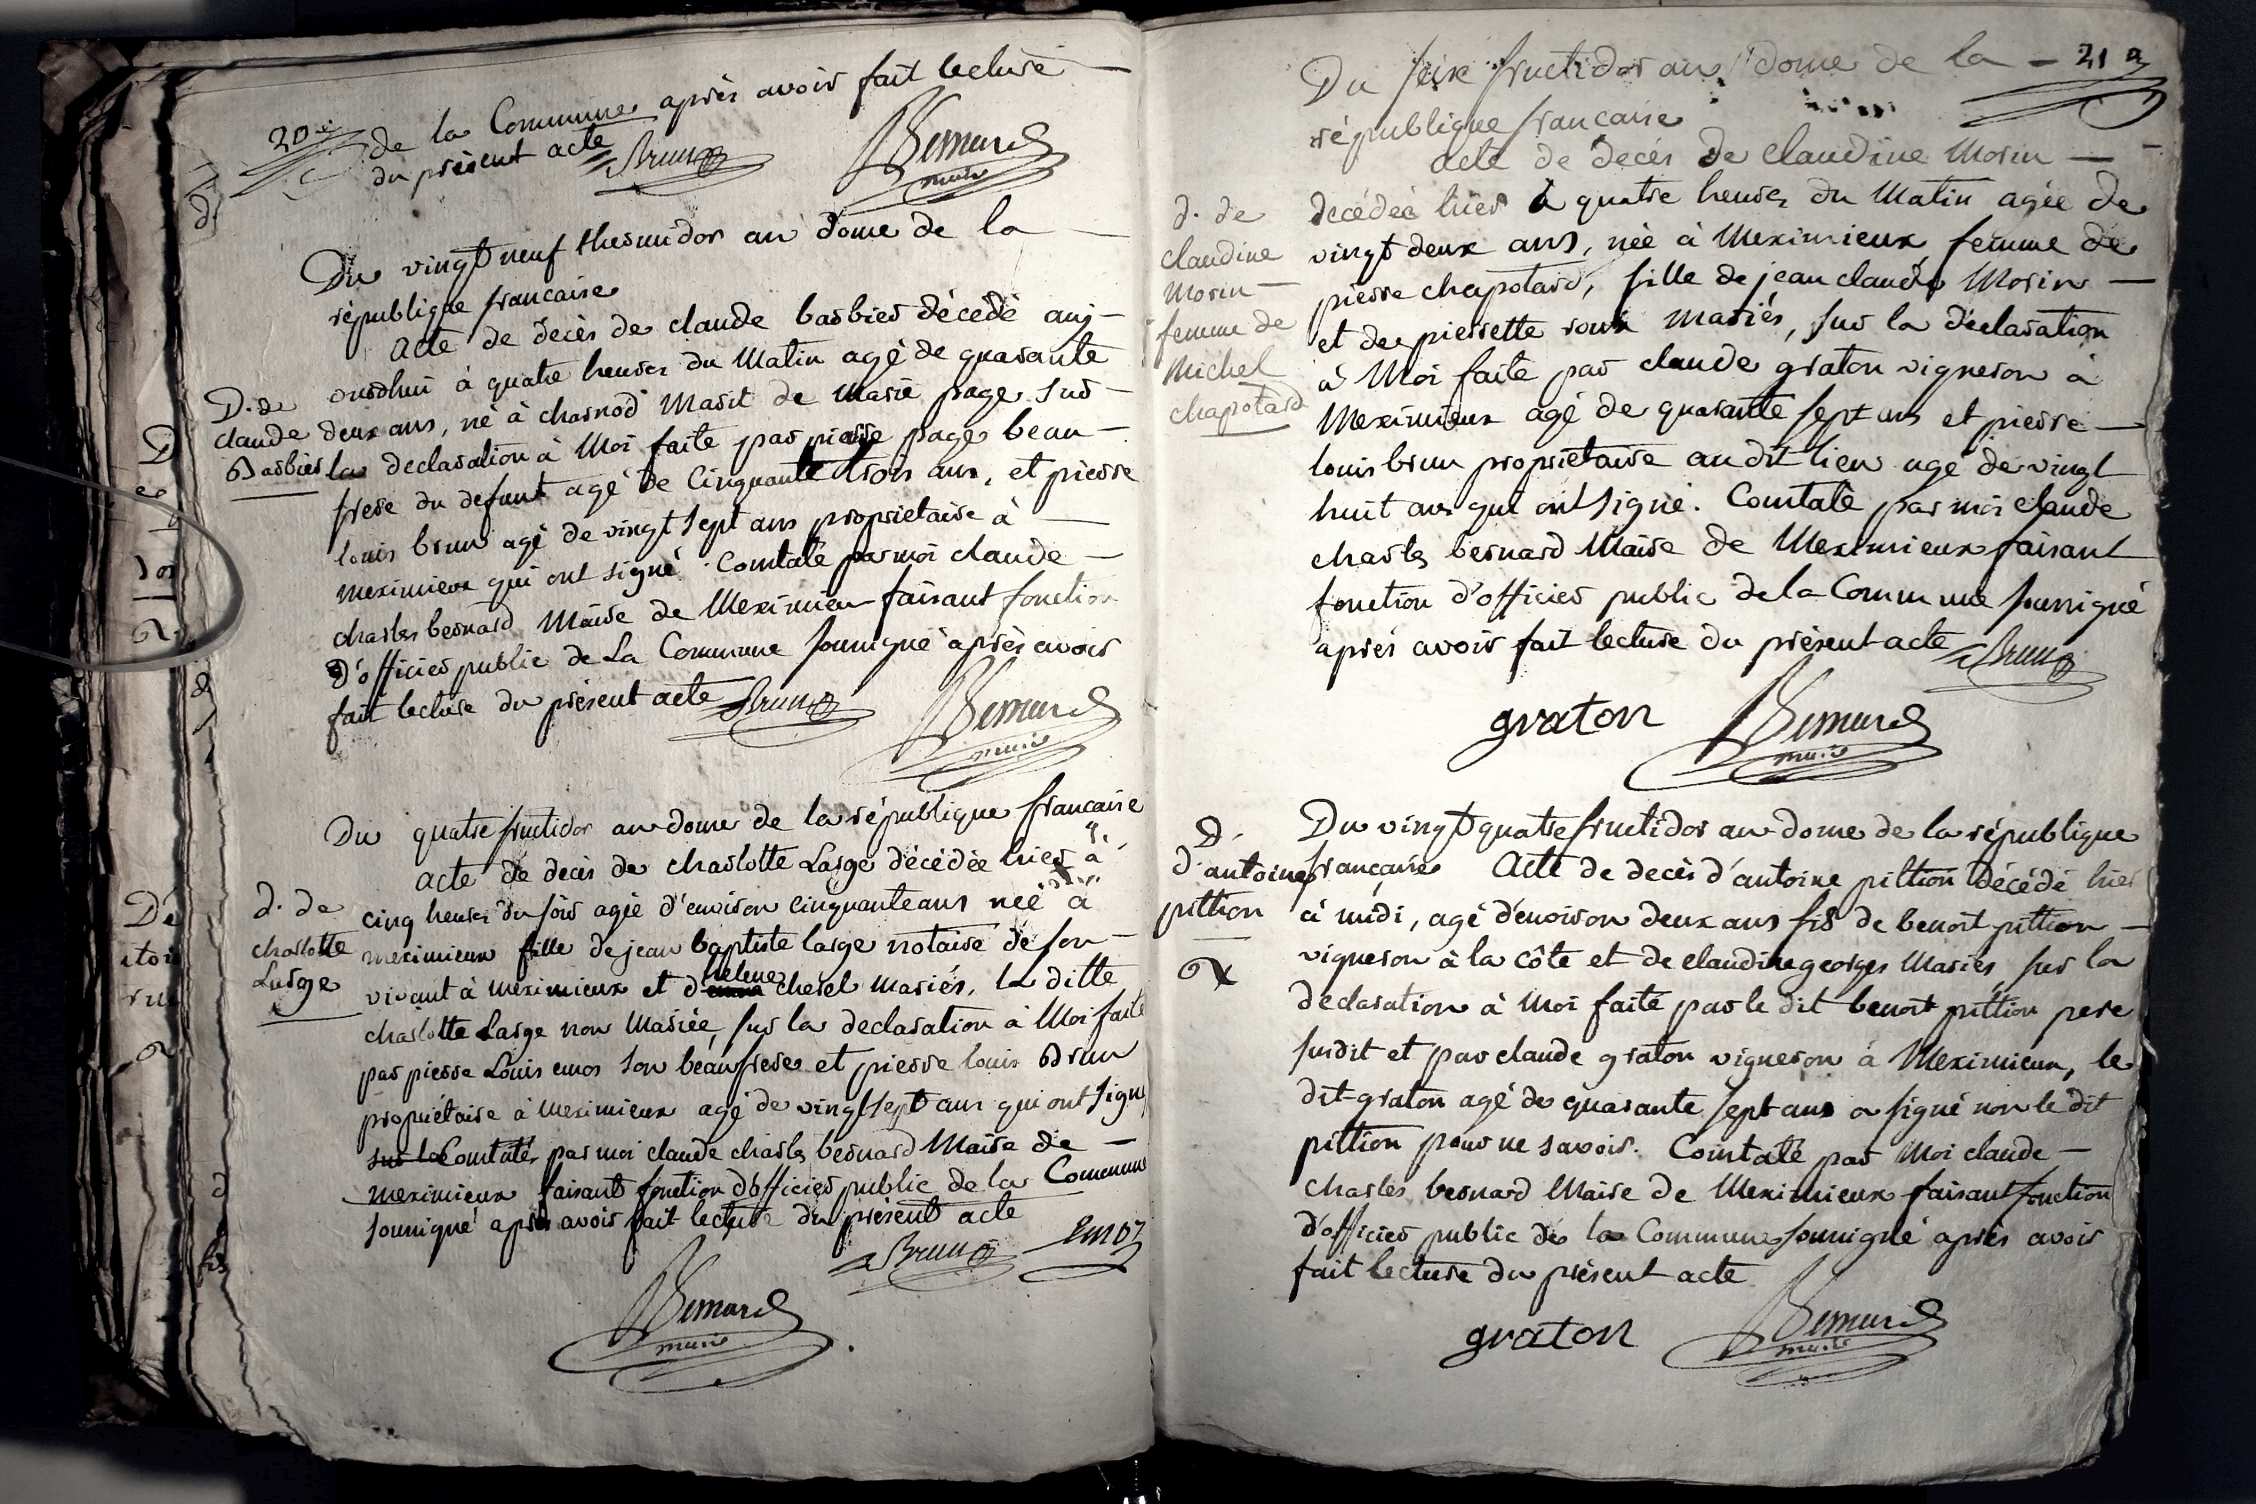 20
de la Commune après avoir fait lecture
du présent acte Brun Bernard
maire
Du vingt neuf thermidor an dome de la
république francaise
acte de décès de claude barbier décédé auj-
D. de ourdhui à quatre heures du Matin agé de quarante
claude deux ans, né à charnod Marit de Marie page sur
Barbier la declaration à Moi faite par pierre page beau-
frere du defunt agé de Cinquante trois ans, et pierre
louis brun agé de vingt sept ans proprietaire à
meximieux qui ont signé. Contaté par moi claude
charles bernard Maire de Meximieu faisant fonction
d'officier public de La Commune soussigné après avoir
fait lecture du présent acte Brun Bernard
maire
Du quatre fructidor an dome de la république francaise
acte de décès de charlotte Large décédée hier à
d. de cinq heures du soir agée d'environ cinquante ans née à
charlotte meximieux fille de jean baptiste large notaire de son
Large vivant à meximieux et d'helene cherel mariés, la ditte
charlotte Large non Mariée, sur la declaration à Moi faite
par pierre Louis emoz son beaufrere et pierre louis Brun
propriétaire à meximieux agé de vingt sept ans qui ont signé
sur la Contaté par moi claude charles bernard Maire de
meximieux faisant fonction d'officier public de la Commune
soussigné après avoir fait lecture du présent acte
Brun Emoz
Bernard
maire
Du seize fructidor an dome de la 21
république francaise
acte de decès de claudine Morin
d. de décédée hier à quatre heures du Matin agée de
claudine vingt deux ans, née à Meximieux femme de
Morin pierre chapotard, fille de jean claude Morin
femme de et de pierrette roux mariés, sur la déclaration
Michel à Moi faite par claude graton vigneron à
chapotard Meximieux agé de quarante sept ans et pierre
louis brun propriétaire au dit lieu agé de vingt
huit ans qui ont signé. Contaté par moi claude
charles bernard Maire de Meximieux faisant
fonction d'officier public de la Commune soussigné
après avoir fait lecture du présent acte Brun
graton Bernard
maire
D. Du vingt quatre fructidor an dome de la république
d'antoine francaise Acte de decès d'antoine pittion décédé hier
pittion à midi, agé d'environ deux ans fils de benoit pittion
vigneron à la côte et de claudine georges Mariés, sur la
declaration à Moi faite par le dit benoit pittion pere
susdit et par claude graton vigneron à Meximieux, le
dit graton agé de quarante sept ans a signé non le dit
pittion pour ne savoir. Contaté par Moi claude
charles bernard Maire de Meximieux faisant fonction
d'officier public de la Commune soussigné après avoir
fait lecture du présent acte
graton Bernard
maire